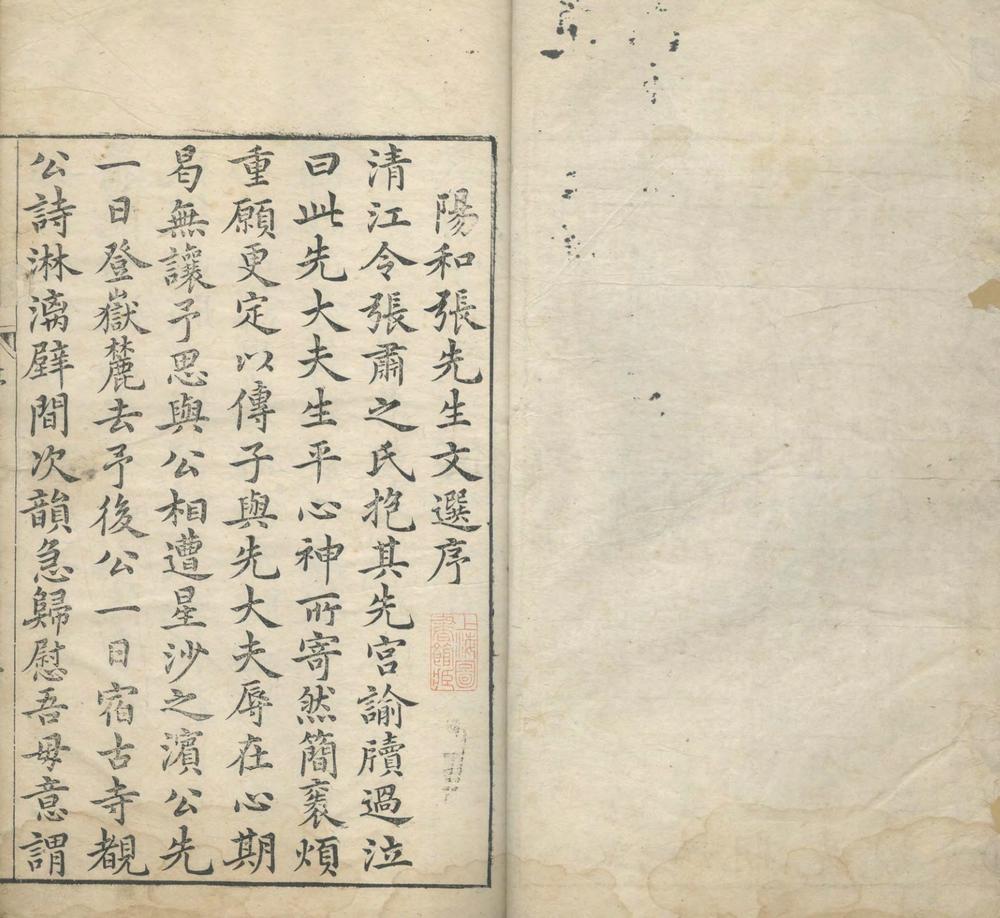 陽和張先生文選序
上海圖書館藏
清江令張肅之氏抱其先宮諭牘過泣
曰此先大夫生平心神所寄然簡袠煩
重願更定以傳子與先大夫辱在心期
曷無讓予思與公相遭星沙之濱公先
一日登嶽麓去予後公一日宿古寺覩
公詩淋漓壁間次韻急歸慰吾毋意謂